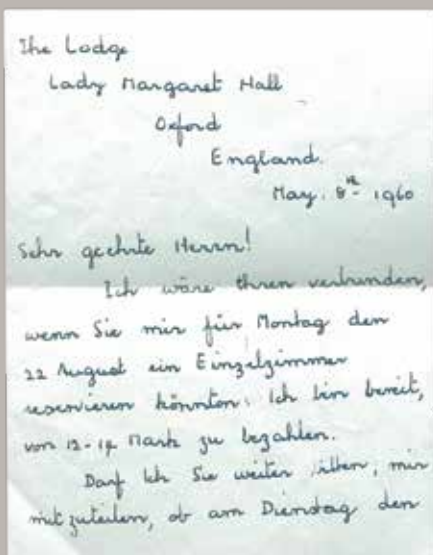 The Lodge
Lady Margaret Hall
Oxford
England.
May. 8th 1960
Sehr geehrte Herrn!
Ich wäre Ihnen verbunden,
wenn Sie mir für Montag den
22 August ein Einzelzimmer
reservieren könnten. Ich bin bereit,
von 12-14 Mark zu bezahlen.
Darf Ich Sie weiter bitten, mir
mitzuteilen, ob am Dienstag den